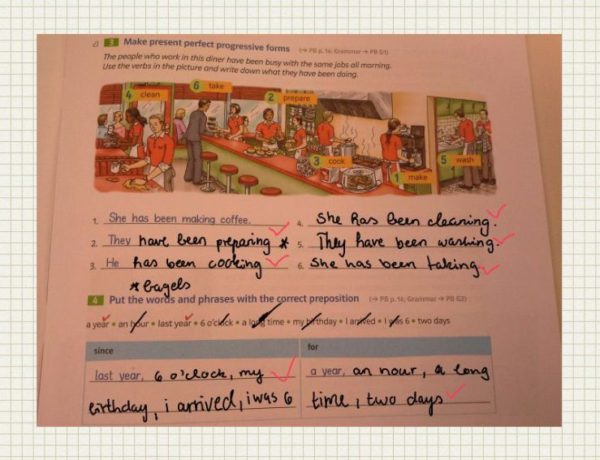 3 Make present perfect progressive forms (→ PB p. 14; Grammar → PB G1)
The people who work in this diner have been busy with the same jobs all morning.
Use the verbs in the picture and write down what they have been doing.
4 clean
6 take
2 prepare
3 cook
1 make
5 wash
1. She has been making coffee.
2. They have been preparing *
3. He has been cooking
* bagels
4. She has been cleaning.
5. They have been washing.
6. She has been taking
4 Put the words and phrases with the correct preposition (→ PB p. 14; Grammar → PB G2)
a year • an hour • last year • 6 o'clock • a long time • my birthday • I arrived • I was 6 • two days
since
last year, 6 o'clock, my
birthday, i arrived, i was 6
for
a year, an hour, a long
time, two days